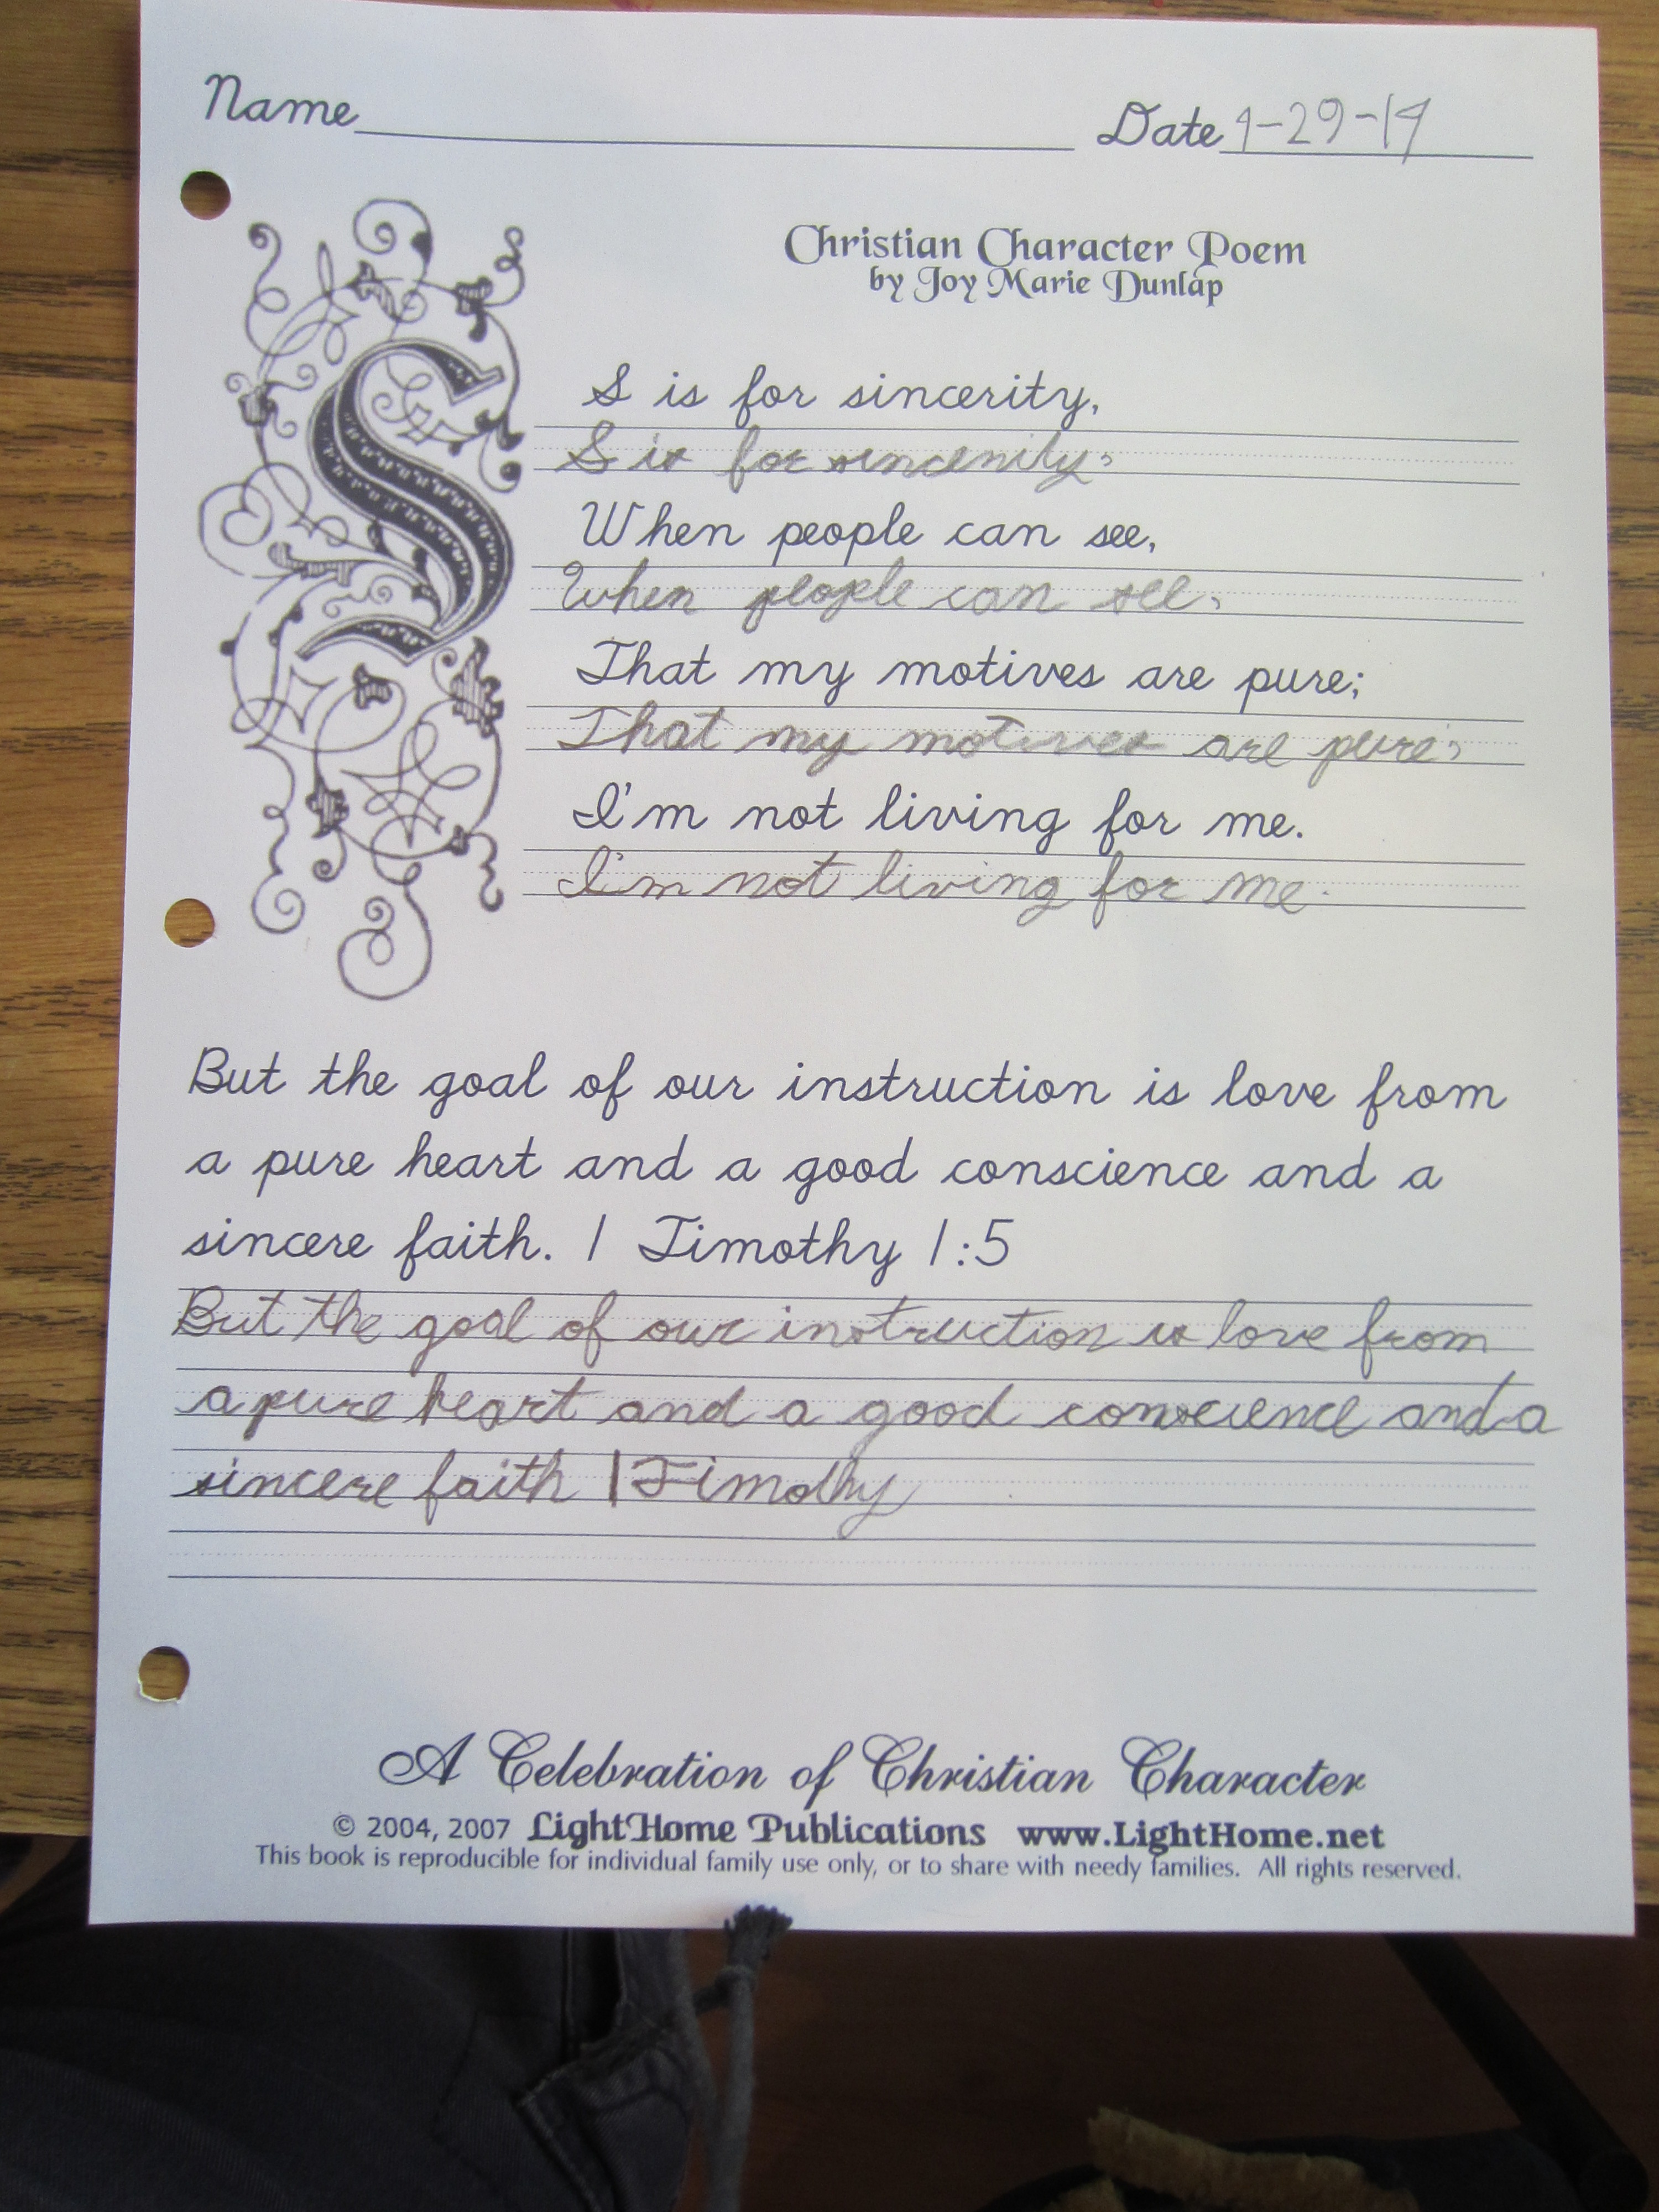 Name Date 9-29-14
Christian Character Poem
by Joy Marie Dunlap
S
S is for sincerity,
S is for sincerity,
When people can see,
When people can see,
That my motives are pure;
That my motives are pure;
I'm not living for me.
I'm not living for me.
But the goal of our instruction is love from
a pure heart and a good conscience and a
sincere faith. 1 Timothy 1:5
But the goal of our instruction is love from
a pure heart and a good conscience and a
sincere faith 1 Timothy
A Celebration of Christian Character
© 2004, 2007 LightHome Publications www.LightHome.net
This book is reproducible for individual family use only, or to share with needy families. All rights reserved.